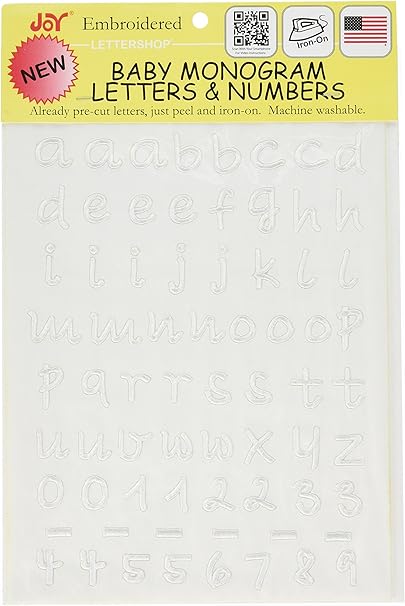 JOY® Embroidered
LETTERSHOP™
Scan With Your Smartphone
For Video Instructions
Iron-On
NEW
BABY MONOGRAM
LETTERS & NUMBERS
Already pre-cut letters, just peel and iron-on. Machine washable.
a a a b b c c d
d e e e f g h h
i i i j j k l l
m m n n o o o p
p q r r s s t t
u u v w w x y z
0 0 1 1 2 2 3 3
- - - - - -
4 4 5 5 6 7 8 9